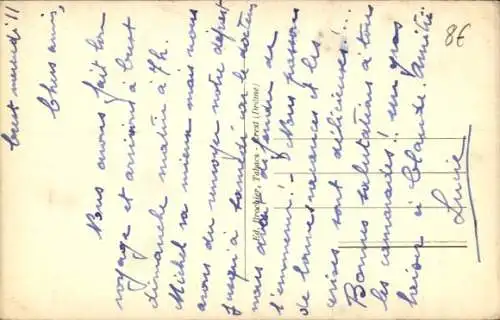 Crest mercredi 11
Chers amis,
Nous avons fait bon
voyage et arrivons à Crest
dimanche matin à 7h.
Michel va mieux mais nous
avons du envoyer notre départ
jusqu'à car le docteur
nous de
l'emmener! Nous passons
de bonnes vacances et les
sont délicieuses!...
Bonnes salutations à tous
les camarades!! un gros
baiser à Claude. Amitié
Lucie
Ed. Brochier, Tabacs, Crest (Drôme)
8€